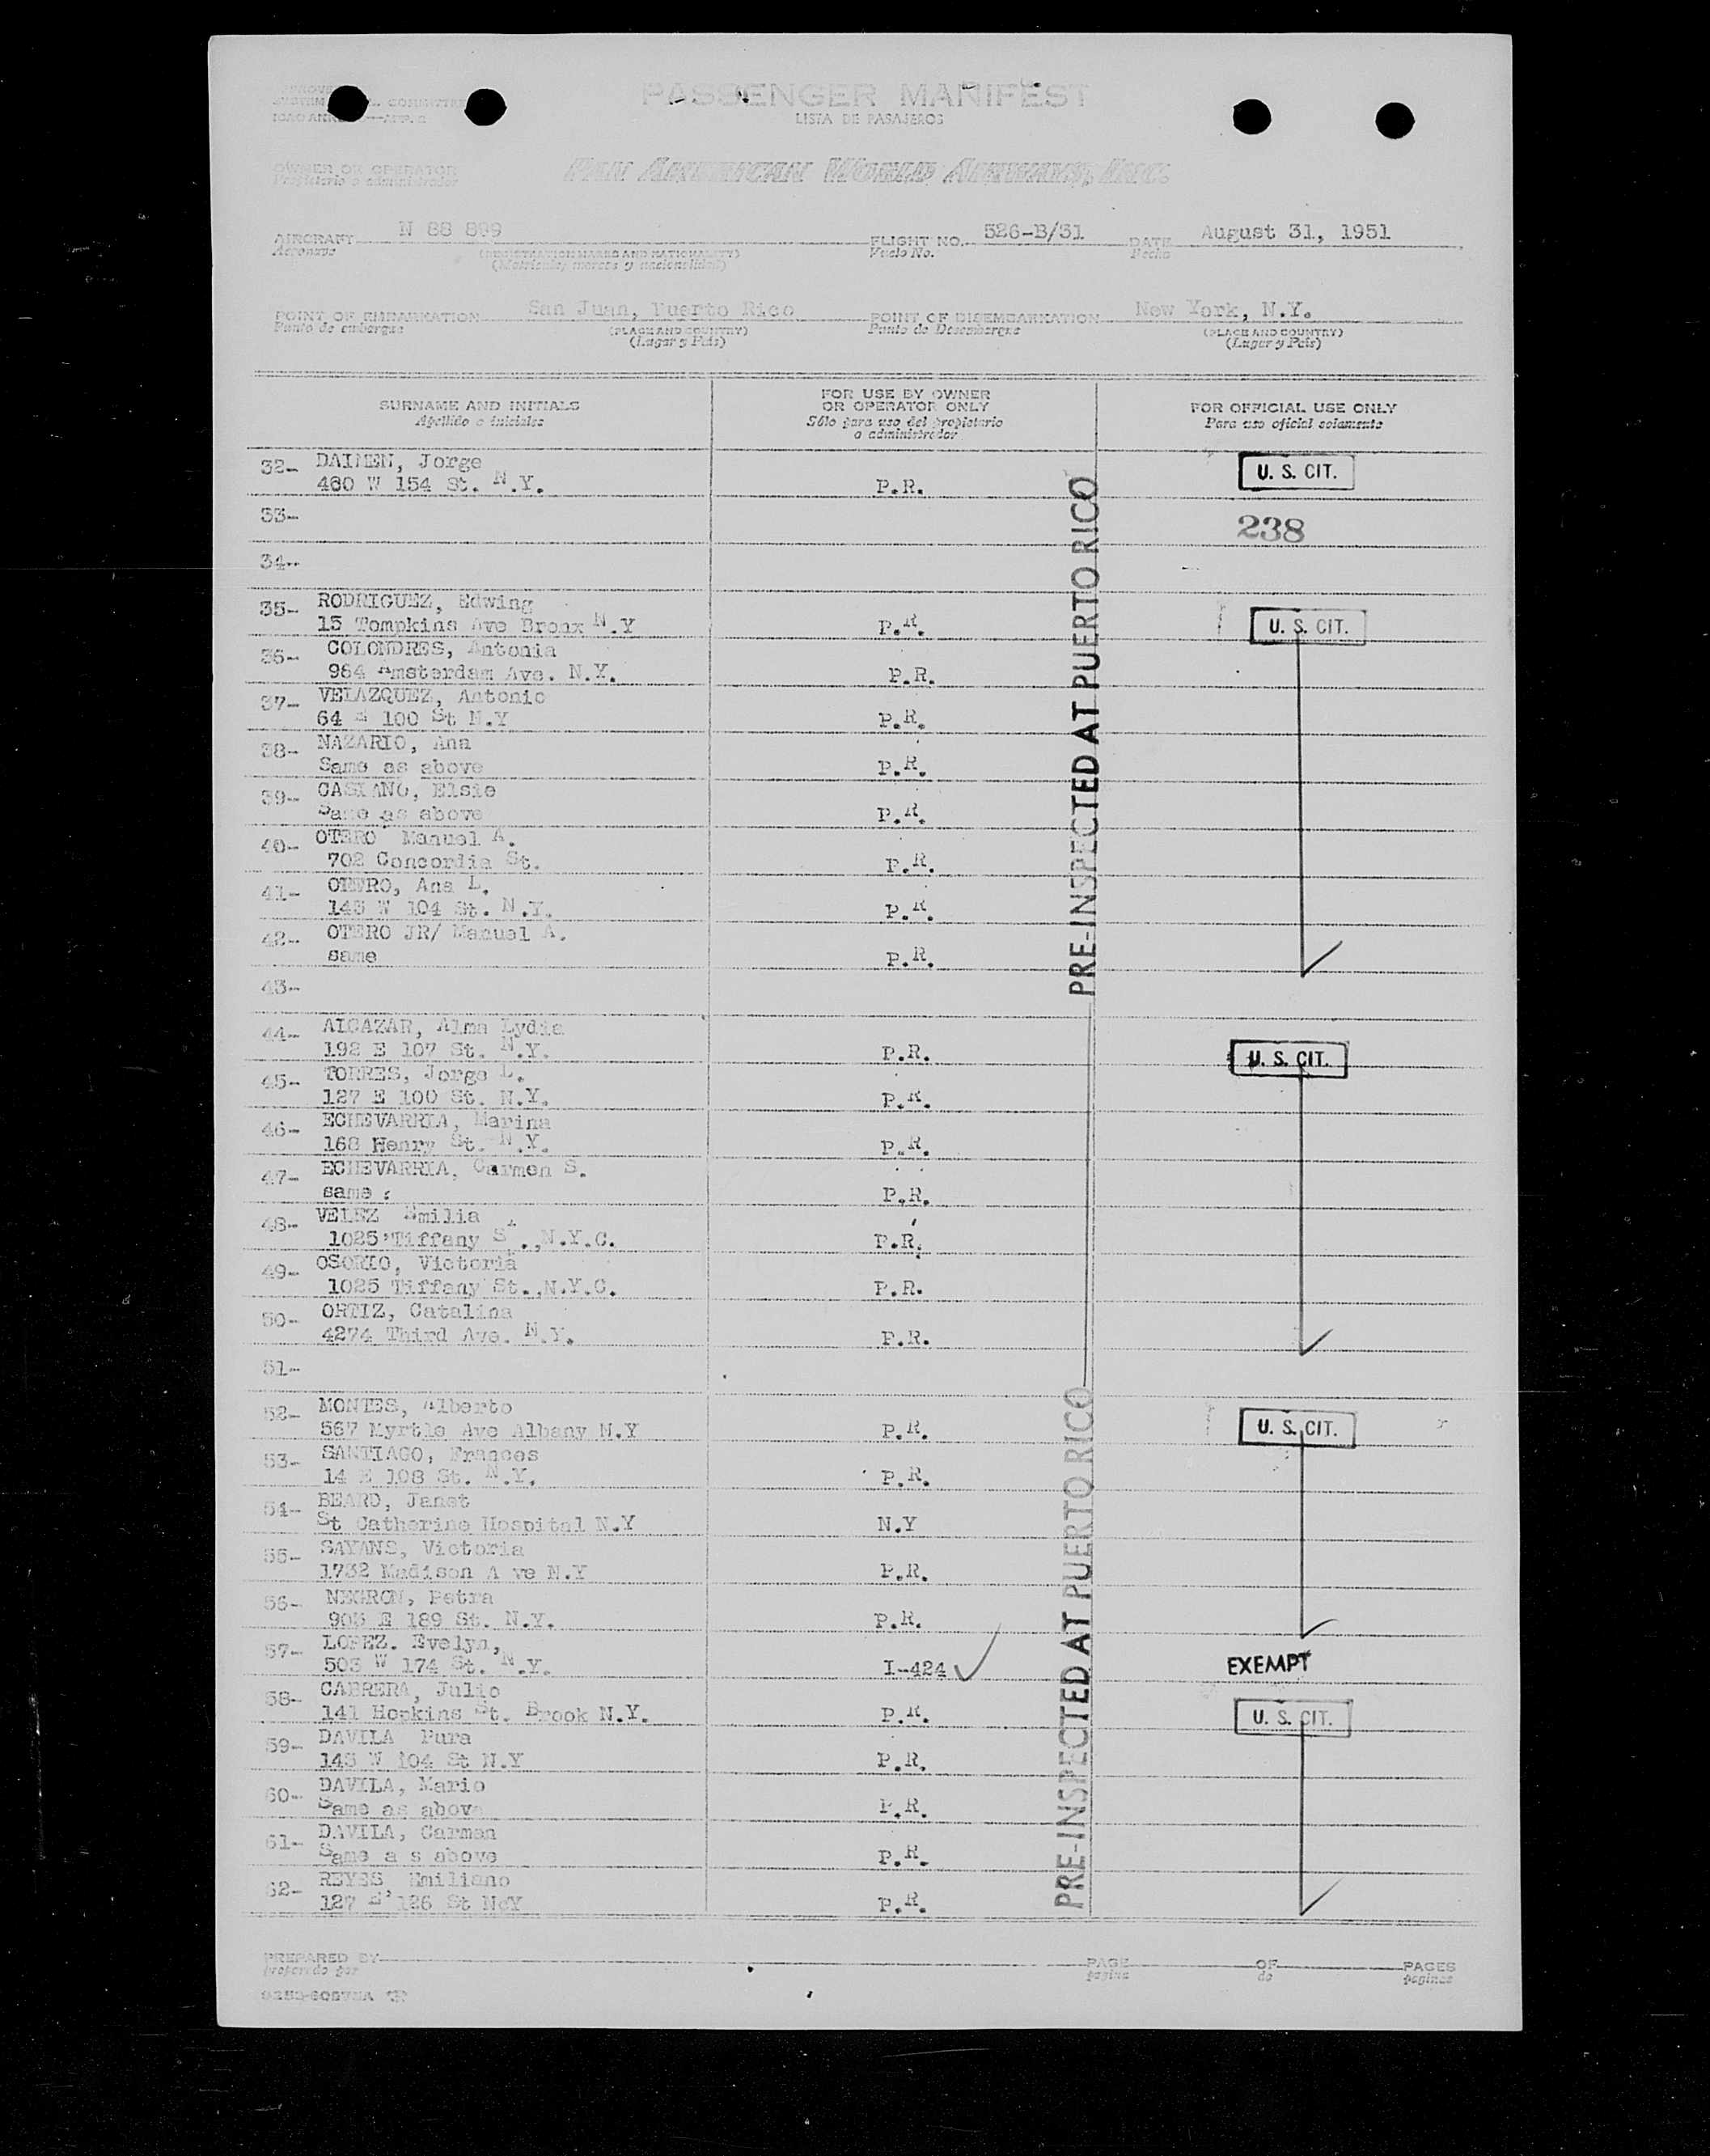 PASSENGER MANIFEST
LISTA DE PASAJEROS
OWNER OR OPERATOR
Propietario o administrador
PAN AMERICAN WORLD AIRWAYS, INC.
AIRCRAFT N 88 899 FLIGHT NO. 526-B/31 DATE August 31, 1951
Aeronave (REGISTRATION MARKS AND NATIONALITY) Vuelo No. Fecha
(Matrícula, marcas y nacionalidad)
POINT OF EMBARKATION San Juan, Puerto Rico POINT OF DISEMBARKATION New York, N.Y.
Punto de embarque (PLACE AND COUNTRY) Punto de Desembarque (PLACE AND COUNTRY)
(Lugar y País) (Lugar y País)
SURNAME AND INITIALS FOR USE BY OWNER OR OPERATOR ONLY FOR OFFICIAL USE ONLY
Apellido e iniciales Sólo para uso del propietario o administrador Para uso oficial solamente
32- DAIMEN, Jorge U. S. CIT.
480 W 154 St. N.Y. P.R.
33- 238
34-
35- RODRIGUEZ, Edwing U. S. CIT.
15 Tompkins Ave Bronx N.Y P.R.
36- COLONDRES, Antonia
984 Amsterdam Ave. N.Y. P.R.
37- VELAZQUEZ, Antonio
64 E 100 St N.Y P.R.
38- NAZARIO, Ana
Same as above P.R.
39- CASIANO, Elsie
Same as above P.R.
40- OTERO Manuel A.
702 Concordia St. P.R.
41- OTERO, Ana L.
143 W 104 St. N.Y. P.R.
42- OTERO JR/ Manuel A.
same P.R.
43-
PRE-INSPECTED AT PUERTO RICO
44- ALCAZAR, Alma Lydia
192 E 107 St. N.Y. P.R. U. S. CIT.
45- TORRES, Jorge L.
127 E 100 St. N.Y. P.R.
46- ECHEVARRIA, Marina
168 Henry St. N.Y. P.R.
47- ECHEVARRIA, Carmen S.
same P.R.
48- VELEZ Emilia
1025 Tiffany S ., N.Y.C. P.R.
49- OSORIO, Victoria
1025 Tiffany St., N.Y.C. P.R.
50- ORTIZ, Catalina
4274 Third Ave. N.Y. P.R.
51-
52- MONTES, Alberto
567 Myrtle Ave Albany N.Y P.R. U. S. CIT.
53- SANTIAGO, Frances
14 E 108 St. N.Y. P.R.
54- BEARD, Janet
St Catherine Hospital N.Y N.Y
55- SAYANS, Victoria
1732 Madison A ve N.Y P.R.
56- NEGRON, Petra
903 E 189 St. N.Y. P.R.
57- LOPEZ. Evelyn,
503 W 174 St. N.Y. I-424 EXEMPT
58- CABRERA, Julio
141 Hopkins St. Brook N.Y. P.R. U. S. CIT.
59- DAVILA Pura
143 W 104 St N.Y P.R.
60- DAVILA, Mario
Same as above P.R.
61- DAVILA, Carmen
Same a s above P.R.
62- REYES Emiliano
127 E 126 St N.Y P.R.
PRE-INSPECTED AT PUERTO RICO
PREPARED BY PAGE OF PAGES
preparado por página de páginas